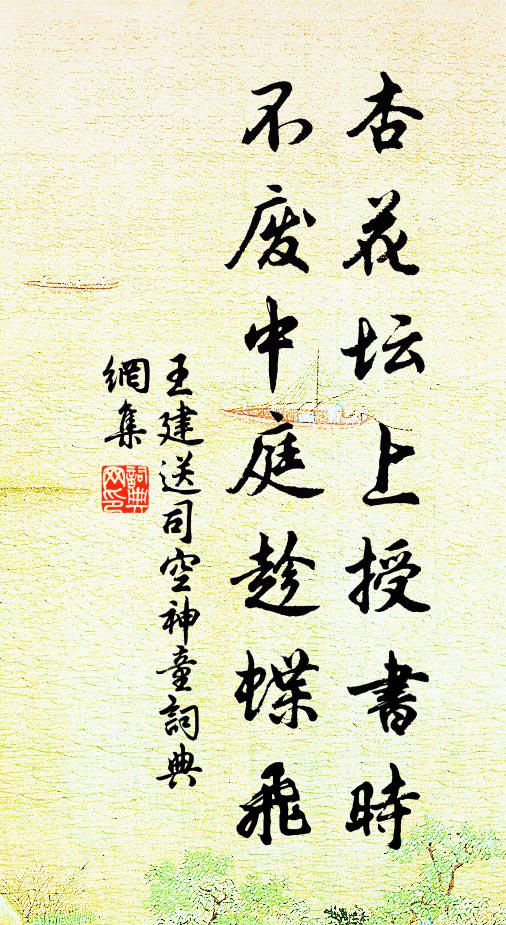 杏花坛上授書時
不废中庭趁蝶飛
王建送司空神童詞典
網集
詞典网印